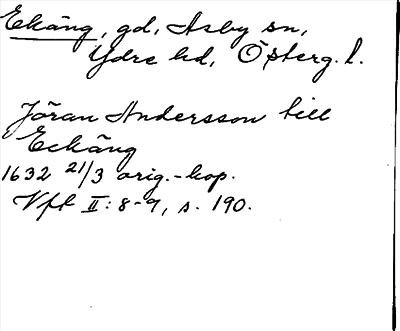 Ekäng, gd, Asby sn,
Ydre hd, Österg. l.
Jöran Andersson till
Eckäng
1632 21/3 orig.-kop.
Vfl II: 8-9, s. 190.